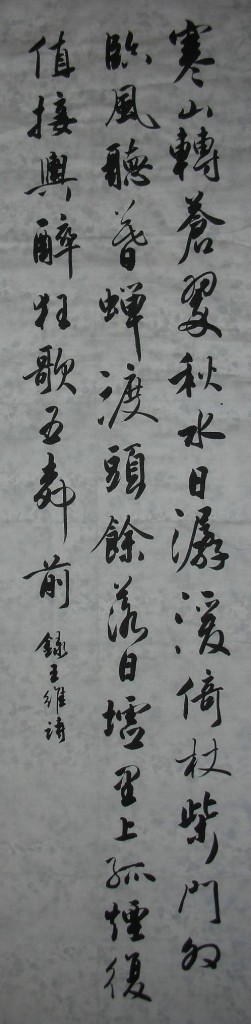 寒山轉蒼翠秋水日潺湲倚杖柴門外
臨風聽暮蟬渡頭餘落日墟里上孤煙復
值接輿醉狂歌五舞前
錄王維詩